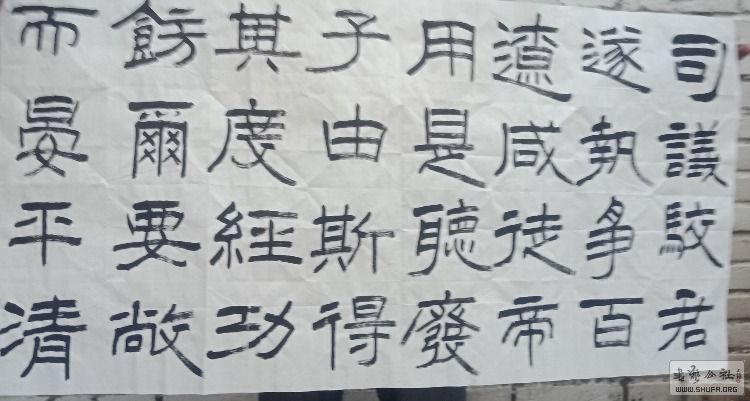 司議駮君
遂執爭百
遼咸從帝
用是聽廢
子由斯得
其度經功
飭爾要敞
而晏平清
书艺公社
WWW.SHUFA.ORG